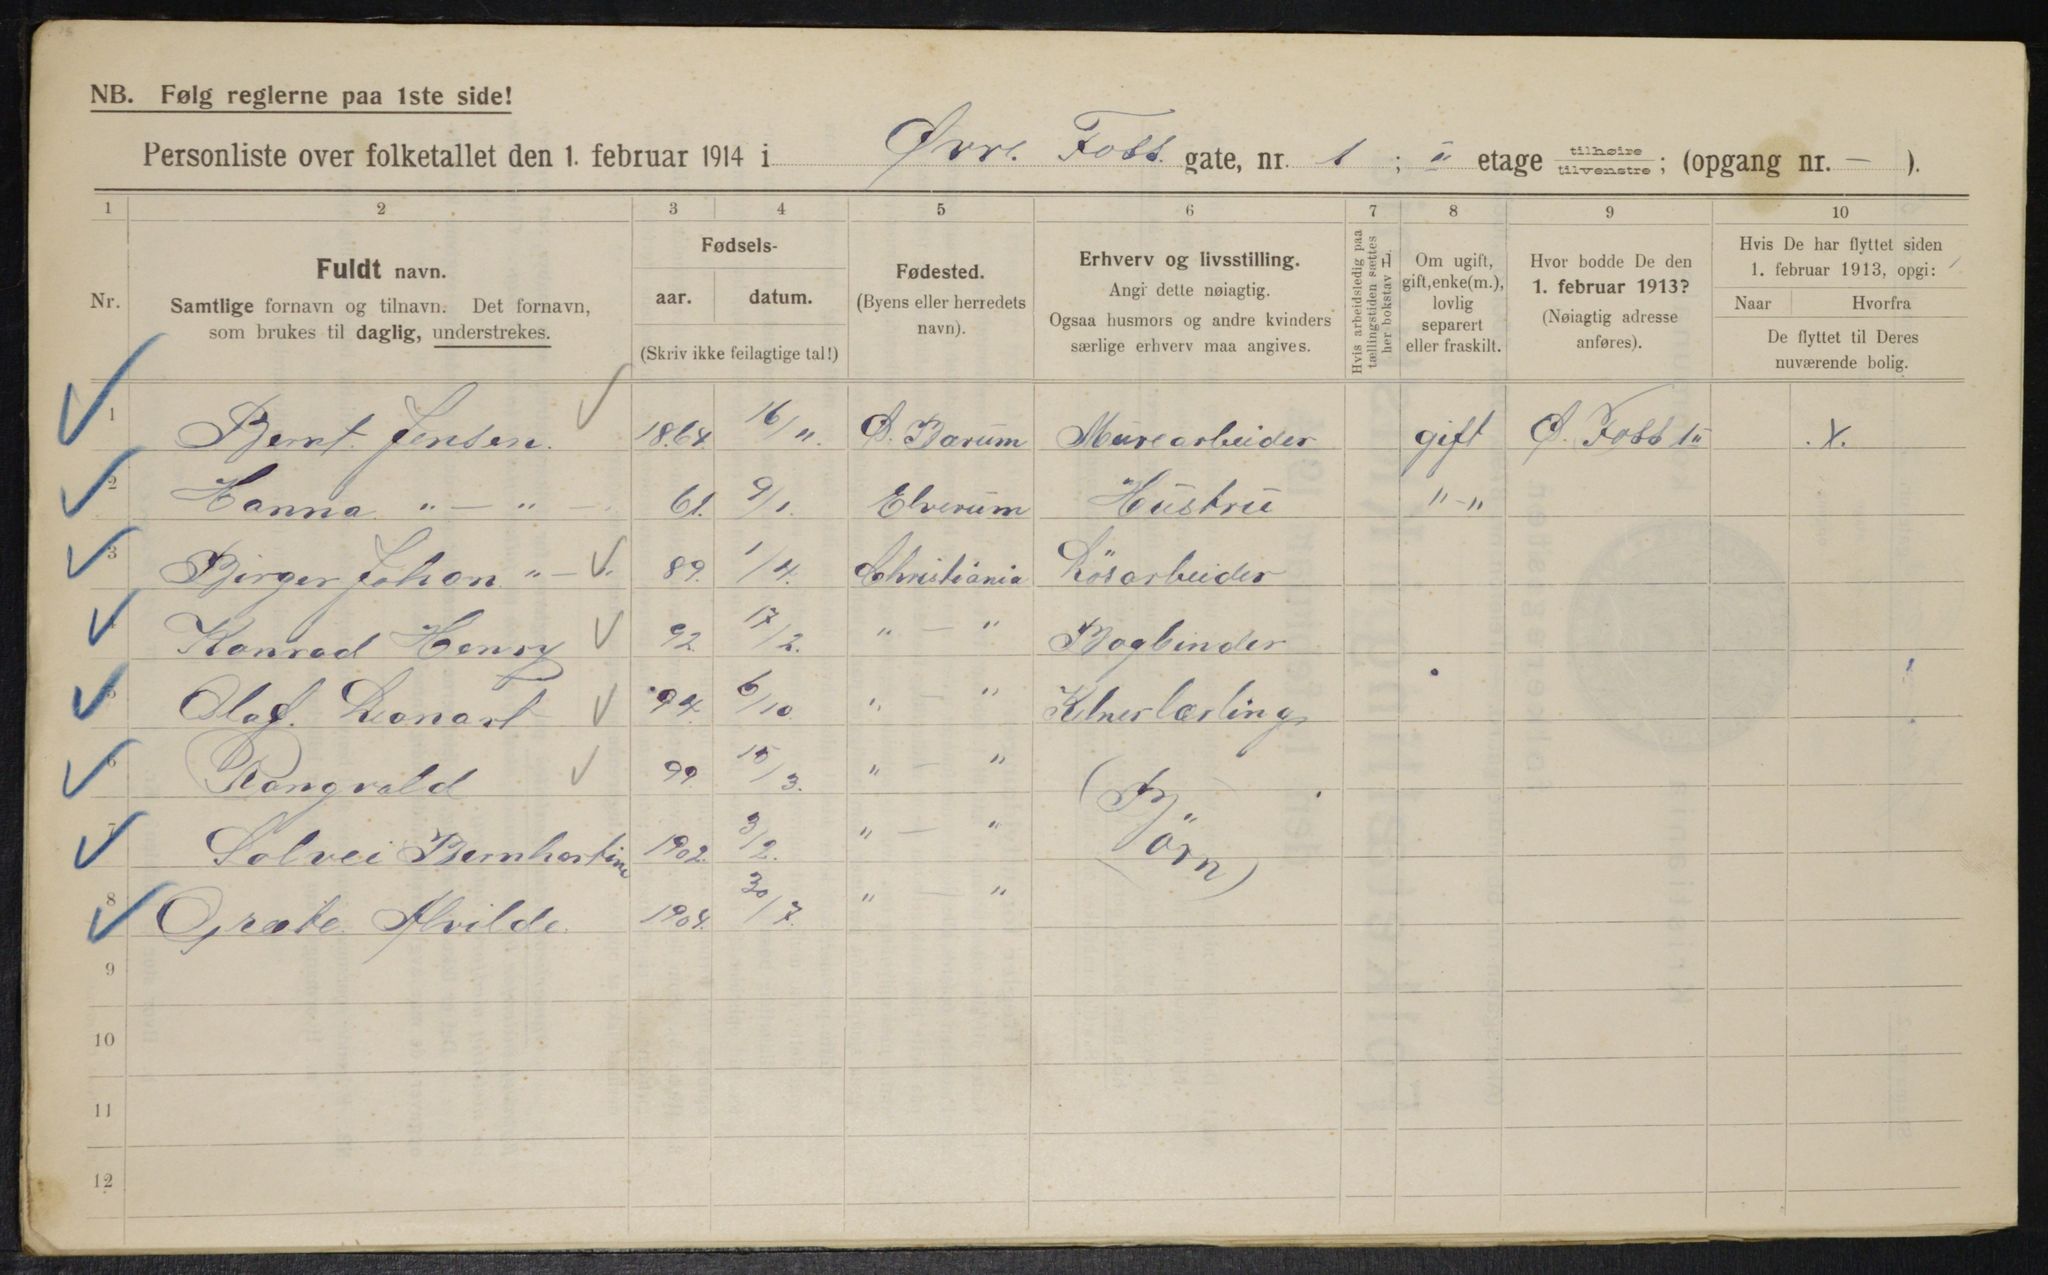 NB. Følg reglerne paa 1ste side!
Personliste over folketallet den 1. februar 1914 i Øvre Foss gate, nr. 1 ; II etage tilhøire tilvenstre ; (opgang nr. — ).
1 2 3 4 5 6 7 8 9 10
Nr.
Fuldt navn.
Samtlige fornavn og tilnavn. Det fornavn,
som brukes til daglig, understrekes.
Fødsels-
aar. datum.
(Skriv ikke feilagtige tal!)
Fødested.
(Byens eller herredets
navn).
Erhverv og livsstilling.
Angi dette nøiagtig.
Ogsaa husmors og andre kvinders
særlige erhverv maa angives.
Hvis arbeidsledig paa
tællingstiden sættes
her bokstav L.
Om ugift,
gift, enke(m.),
lovlig
separert
eller fraskilt.
Hvor bodde De den
1. februar 1913?
(Nøiagtig adresse
anføres).
Hvis De har flyttet siden
1. februar 1913, opgi:
Naar Hvorfra
De flyttet til Deres
nuværende bolig.
1 Bernt. Jensen. 1864. 16/11. Ø. Bærum Murearbeider gift Ø. Foss 1 II .X.
2 Hanna " — " — 61. 9/1. Elverum Hustru " — "
3 Birger Johan " — " 89. 1/4. Christiania Løsarbeider
4 Konrad Henry 92 17/2. " — " Bogbinder
5 Olaf. Leonart 94. 6/10 " — " Kelnerlærling
6 Rangvald 99. 15/3. " — " (Børn)
7 Solvei Bernhartine 1902. 3/2. " — "
8 Græte Alvilde. 1904. 30/7. " — "
9
10
11
12